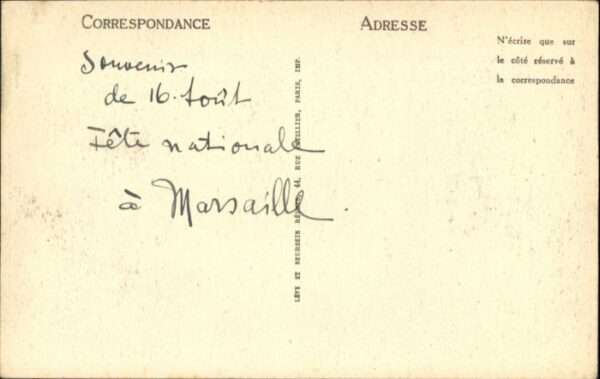 CORRESPONDANCE
ADRESSE
N'écrire que sur
le côté réservé à
la correspondance
Souvenir
de 16. Août
Fête nationale
à Marsaille.
LÉVY ET NEURDEIN RÉUNIS, 44, RUE LETELLIER, PARIS, IMP.